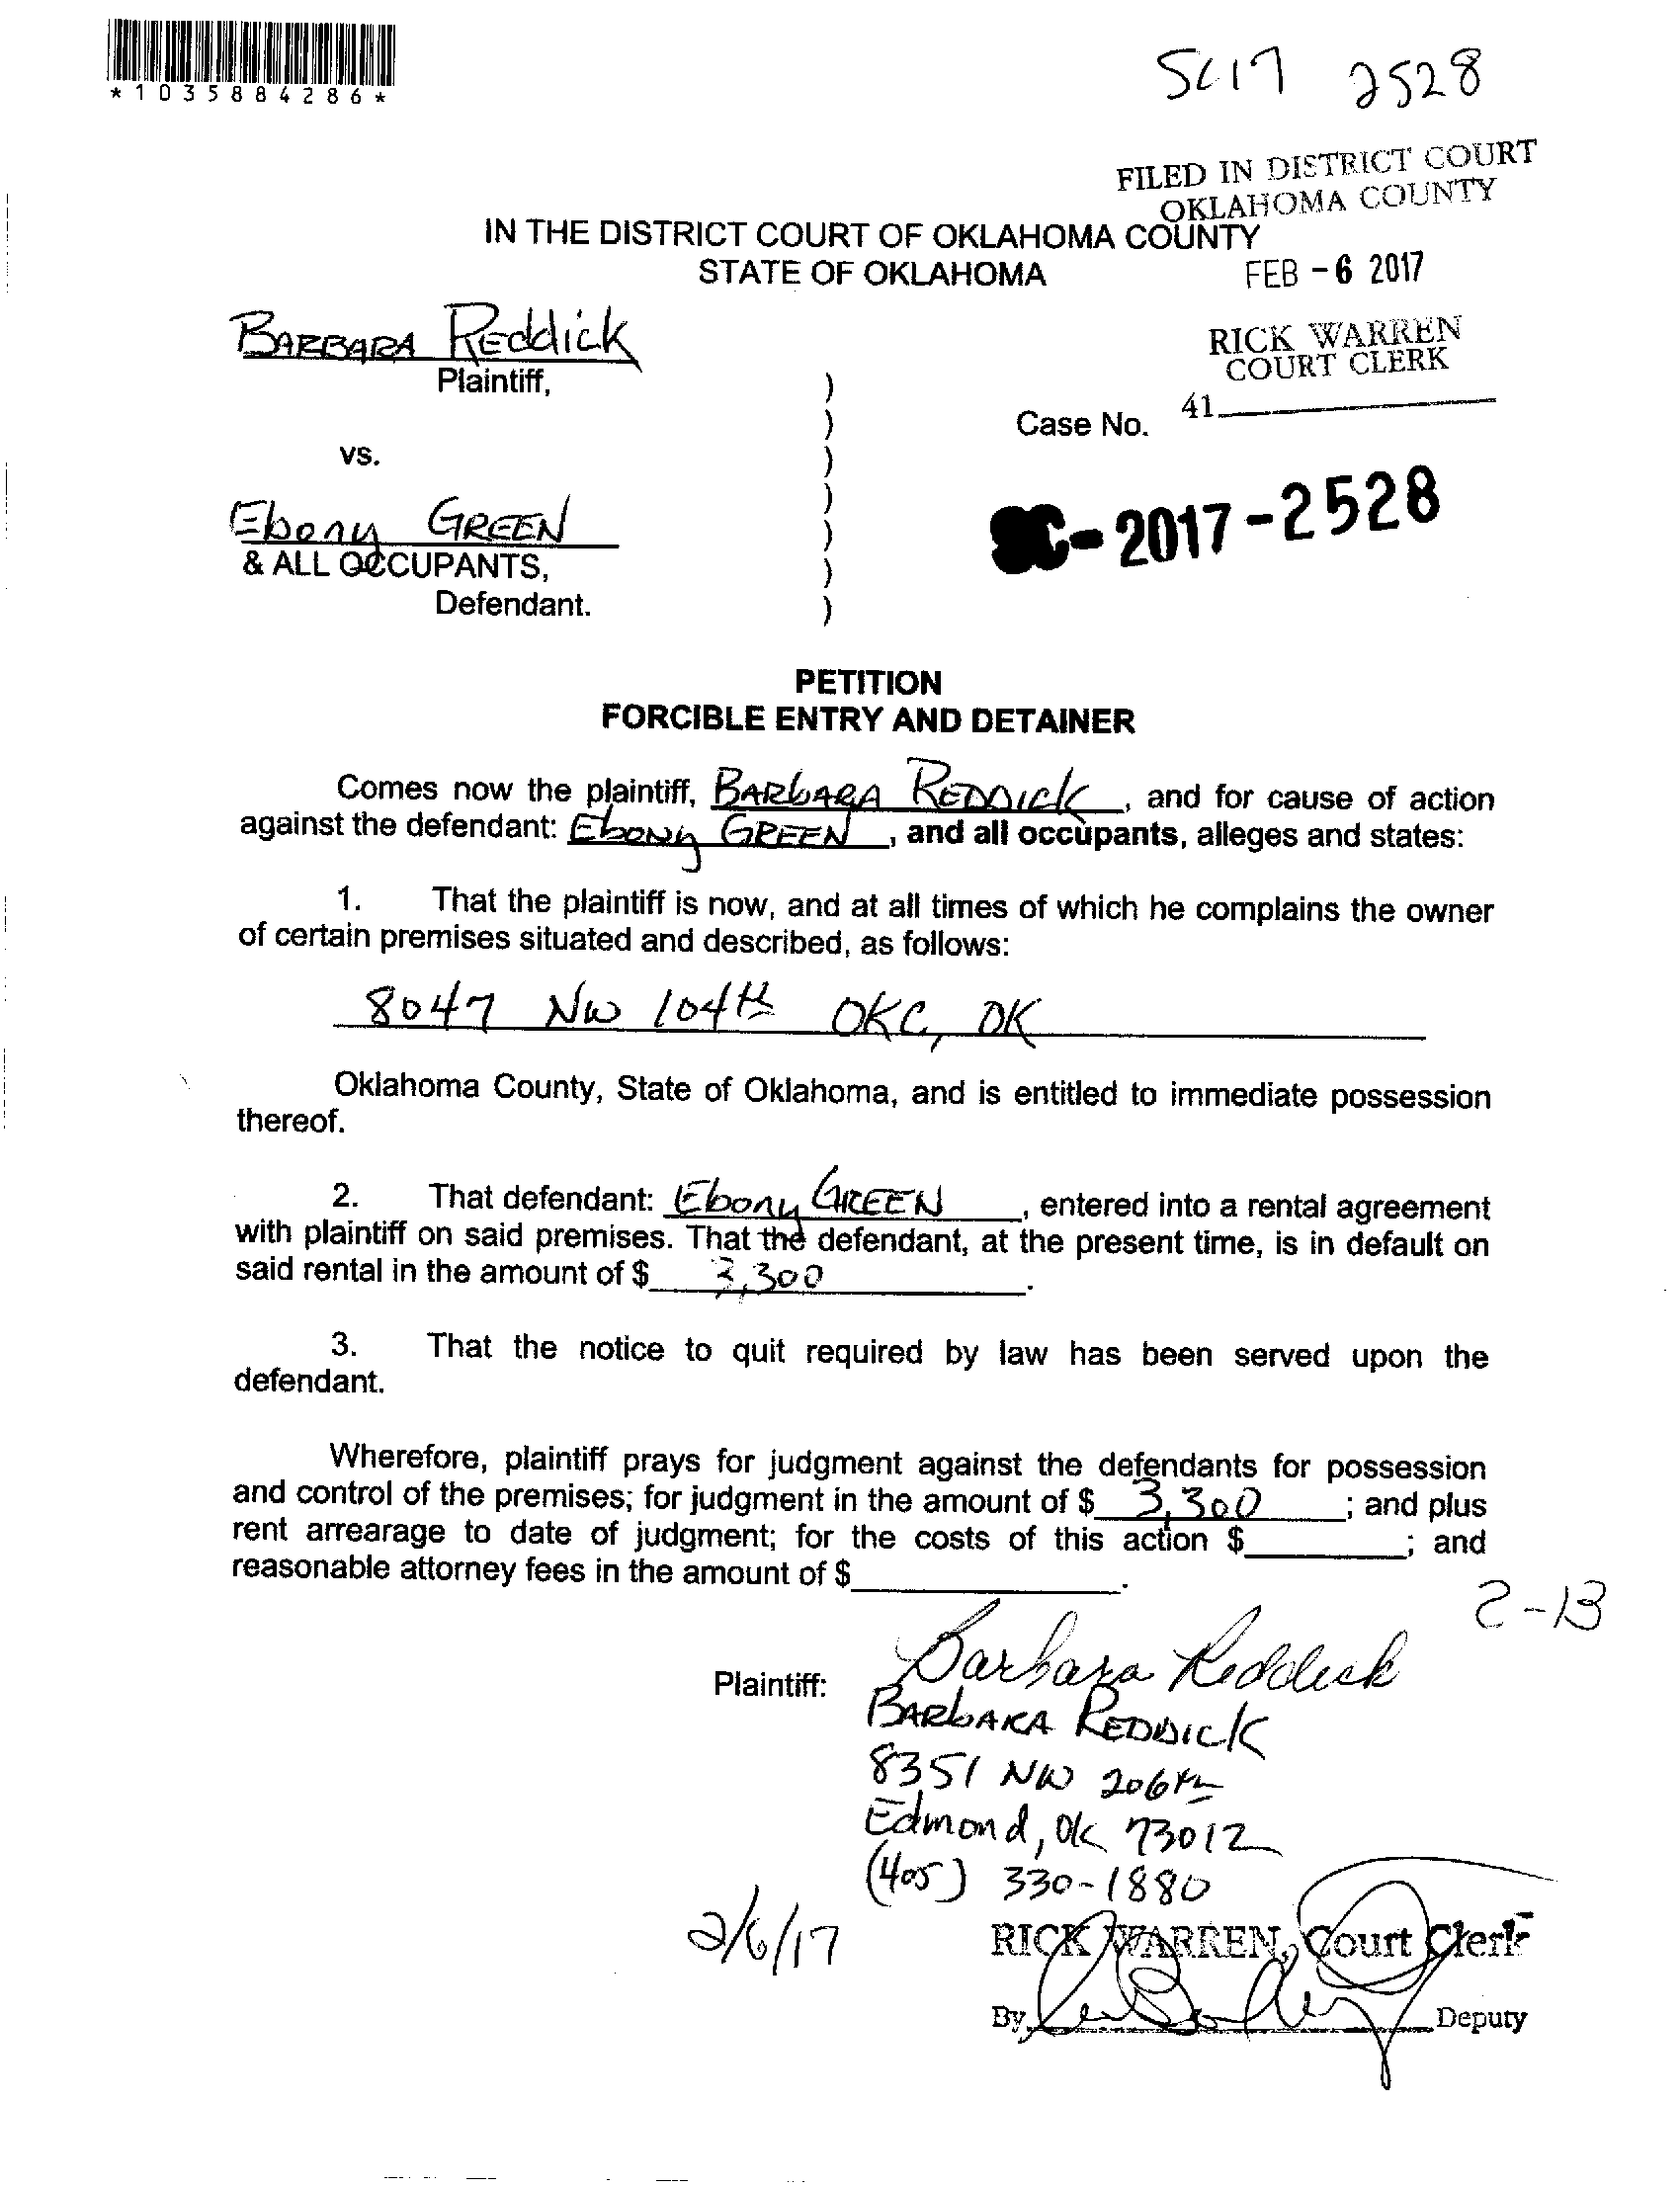 *1035884286*
SC17 2528
FILED IN DISTRICT COURT
OKLAHOMA COUNTY
IN THE DISTRICT COURT OF OKLAHOMA COUNTY
STATE OF OKLAHOMA
FEB -6 2017
BARBARA REddick
Plaintiff,
RICK WARREN
COURT CLERK
41
Case No.
vs.
SC-2017-2528
Ebony GREEN
& ALL OCCUPANTS,
Defendant.
)
)
)
)
)
)
)
PETITION
FORCIBLE ENTRY AND DETAINER
Comes now the plaintiff, BARbARA REDDICK, and for cause of action
against the defendant: EbONy GREEN, and all occupants, alleges and states:
1. That the plaintiff is now, and at all times of which he complains the owner
of certain premises situated and described, as follows:
8047 NW 104th OKC, OK
Oklahoma County, State of Oklahoma, and is entitled to immediate possession
thereof.
2. That defendant: Ebony GREEN, entered into a rental agreement
with plaintiff on said premises. That the defendant, at the present time, is in default on
said rental in the amount of $ 3,300.
3. That the notice to quit required by law has been served upon the
defendant.
Wherefore, plaintiff prays for judgment against the defendants for possession
and control of the premises; for judgment in the amount of $ 3,300; and plus
rent arrearage to date of judgment; for the costs of this action $; and
reasonable attorney fees in the amount of $.
2-13
Plaintiff: Barbara Reddick
BARbARA REDDICK
8351 NW 206th
Edmond, OK 73012
(405) 330-1880
2/6/17
RICK WARREN, Court Clerk
By Deputy